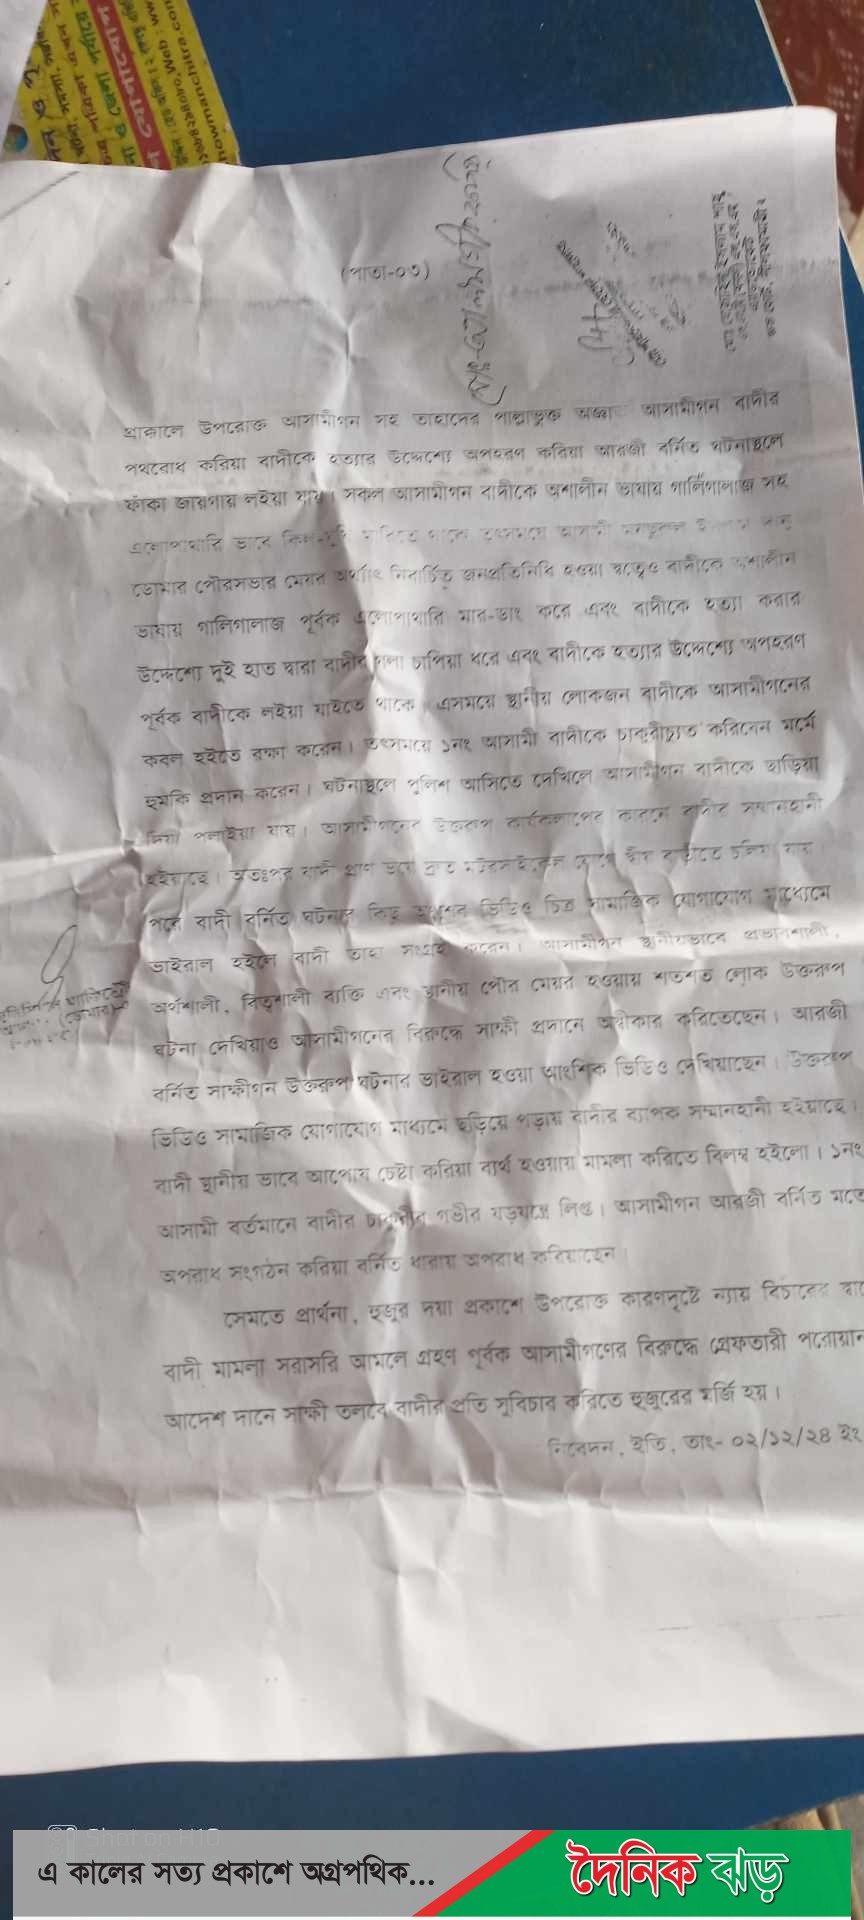 howmanchitra.com
(পাতা-০৩)
প্রাক্কালে উপরোক্ত আসামীগন সহ তাহাদের পাল্লাভুক্ত অজ্ঞা আসামীগন বাদীর
পথরোধ করিয়া বাদীকে হত্যার উদ্দেশ্যে অপহরণ করিয়া আরজী বর্নিত ঘটনাস্থলে
ফাঁকা জায়গায় লইয়া যায়। সকল আসামীগন বাদীকে অশালীন ভাষায় গালিগালাজ সহ
এলোপাথারি ভাবে কিল-ঘুষি মারিতে থাকে তৎসময়ে আসামী
ডোমার পৌরসভার মেয়র অর্থ্যাৎ নির্বাচিত জনপ্রতিনিধি হওয়া স্বত্বেও বাদীকে অশালীন
ভাষায় গালিগালাজ পূর্বক এলোপাথারি মার-ডাং করে এবং বাদীকে হত্যা করার
উদ্দেশ্যে দুই হাত দ্বারা বাদীর গলা চাপিয়া ধরে এবং বাদীকে হত্যার উদ্দেশ্যে অপহরণ
পূর্বক বাদীকে লইয়া যাইতে থাকে। এসময়ে স্থানীয় লোকজন বাদীকে আসামীগনের
কবল হইতে রক্ষা করেন। তৎসময়ে ১নং আসামী বাদীকে চাকুরীচ্যুত করিবেন মর্মে
হুমকি প্রদান করেন। ঘটনাস্থলে পুলিশ আসিতে দেখিলে আসামীগন বাদীকে ছাড়িয়া
দিয়া পলাইয়া যায়। আসামীগনের উক্তরূপ কার্যকলাপের কারনে বাদীর সম্মানহানী
হইয়াছে। অতঃপর বাদী প্রাণ ভয়ে দ্রুত মটরসাইকেল যোগে স্বীয় বাড়ীতে চলিয়া যায়
পরে বাদী বর্নিত ঘটনার কিছু অংশের ভিডিও চিত্র সামাজিক যোগাযোগ মাধ্যেমে
ভাইরাল হইলে বাদী তাহা সংগ্রহ করেন। আসামীগন স্থানীয়ভাবে প্রভাবশালী,
অর্থশালী, বিত্তশালী ব্যক্তি এবং স্থানীয় পৌর মেয়র হওয়ায় শতশত লোক উক্তরূপ
ঘটনা দেখিয়াও আসামীগনের বিরুদ্ধে সাক্ষী প্রদানে অস্বীকার করিতেছেন। আরজী
বর্নিত সাক্ষীগন উক্তরূপ ঘটনার ভাইরাল হওয়া আংশিক ভিডিও দেখিয়াছেন। উক্তরূপ
ভিডিও সামাজিক যোগাযোগ মাধ্যমে ছড়িয়ে পড়ায় বাদীর ব্যাপক সম্মানহানী হইয়াছে।
বাদী স্থানীয় ভাবে আপোষ চেষ্টা করিয়া ব্যর্থ হওয়ায় মামলা করিতে বিলম্ব হইলো। ১নং
আসামী বর্তমানে বাদীর চাকুরীর গভীর ষড়যন্ত্রে লিপ্ত। আসামীগন আরজী বর্নিত মতে
অপরাধ সংগঠন করিয়া বর্নিত ধারায় অপরাধ করিয়াছেন।
সেমতে প্রার্থনা, হুজুর দয়া প্রকাশে উপরোক্ত কারণদৃষ্টে ন্যায় বিচারের স্বা
বাদী মামলা সরাসরি আমলে গ্রহণ পূর্বক আসামীগণের বিরুদ্ধে গ্রেফতারী পরোয়ান
আদেশ দানে সাক্ষী তলবে বাদীর প্রতি সুবিচার করিতে হুজুরের মর্জি হয়।
নিবেদন, ইতি, তাং- ০২/১২/২৪ ইং
এ কালের সত্য প্রকাশে অগ্রপথিক...
দৈনিক ঝড়